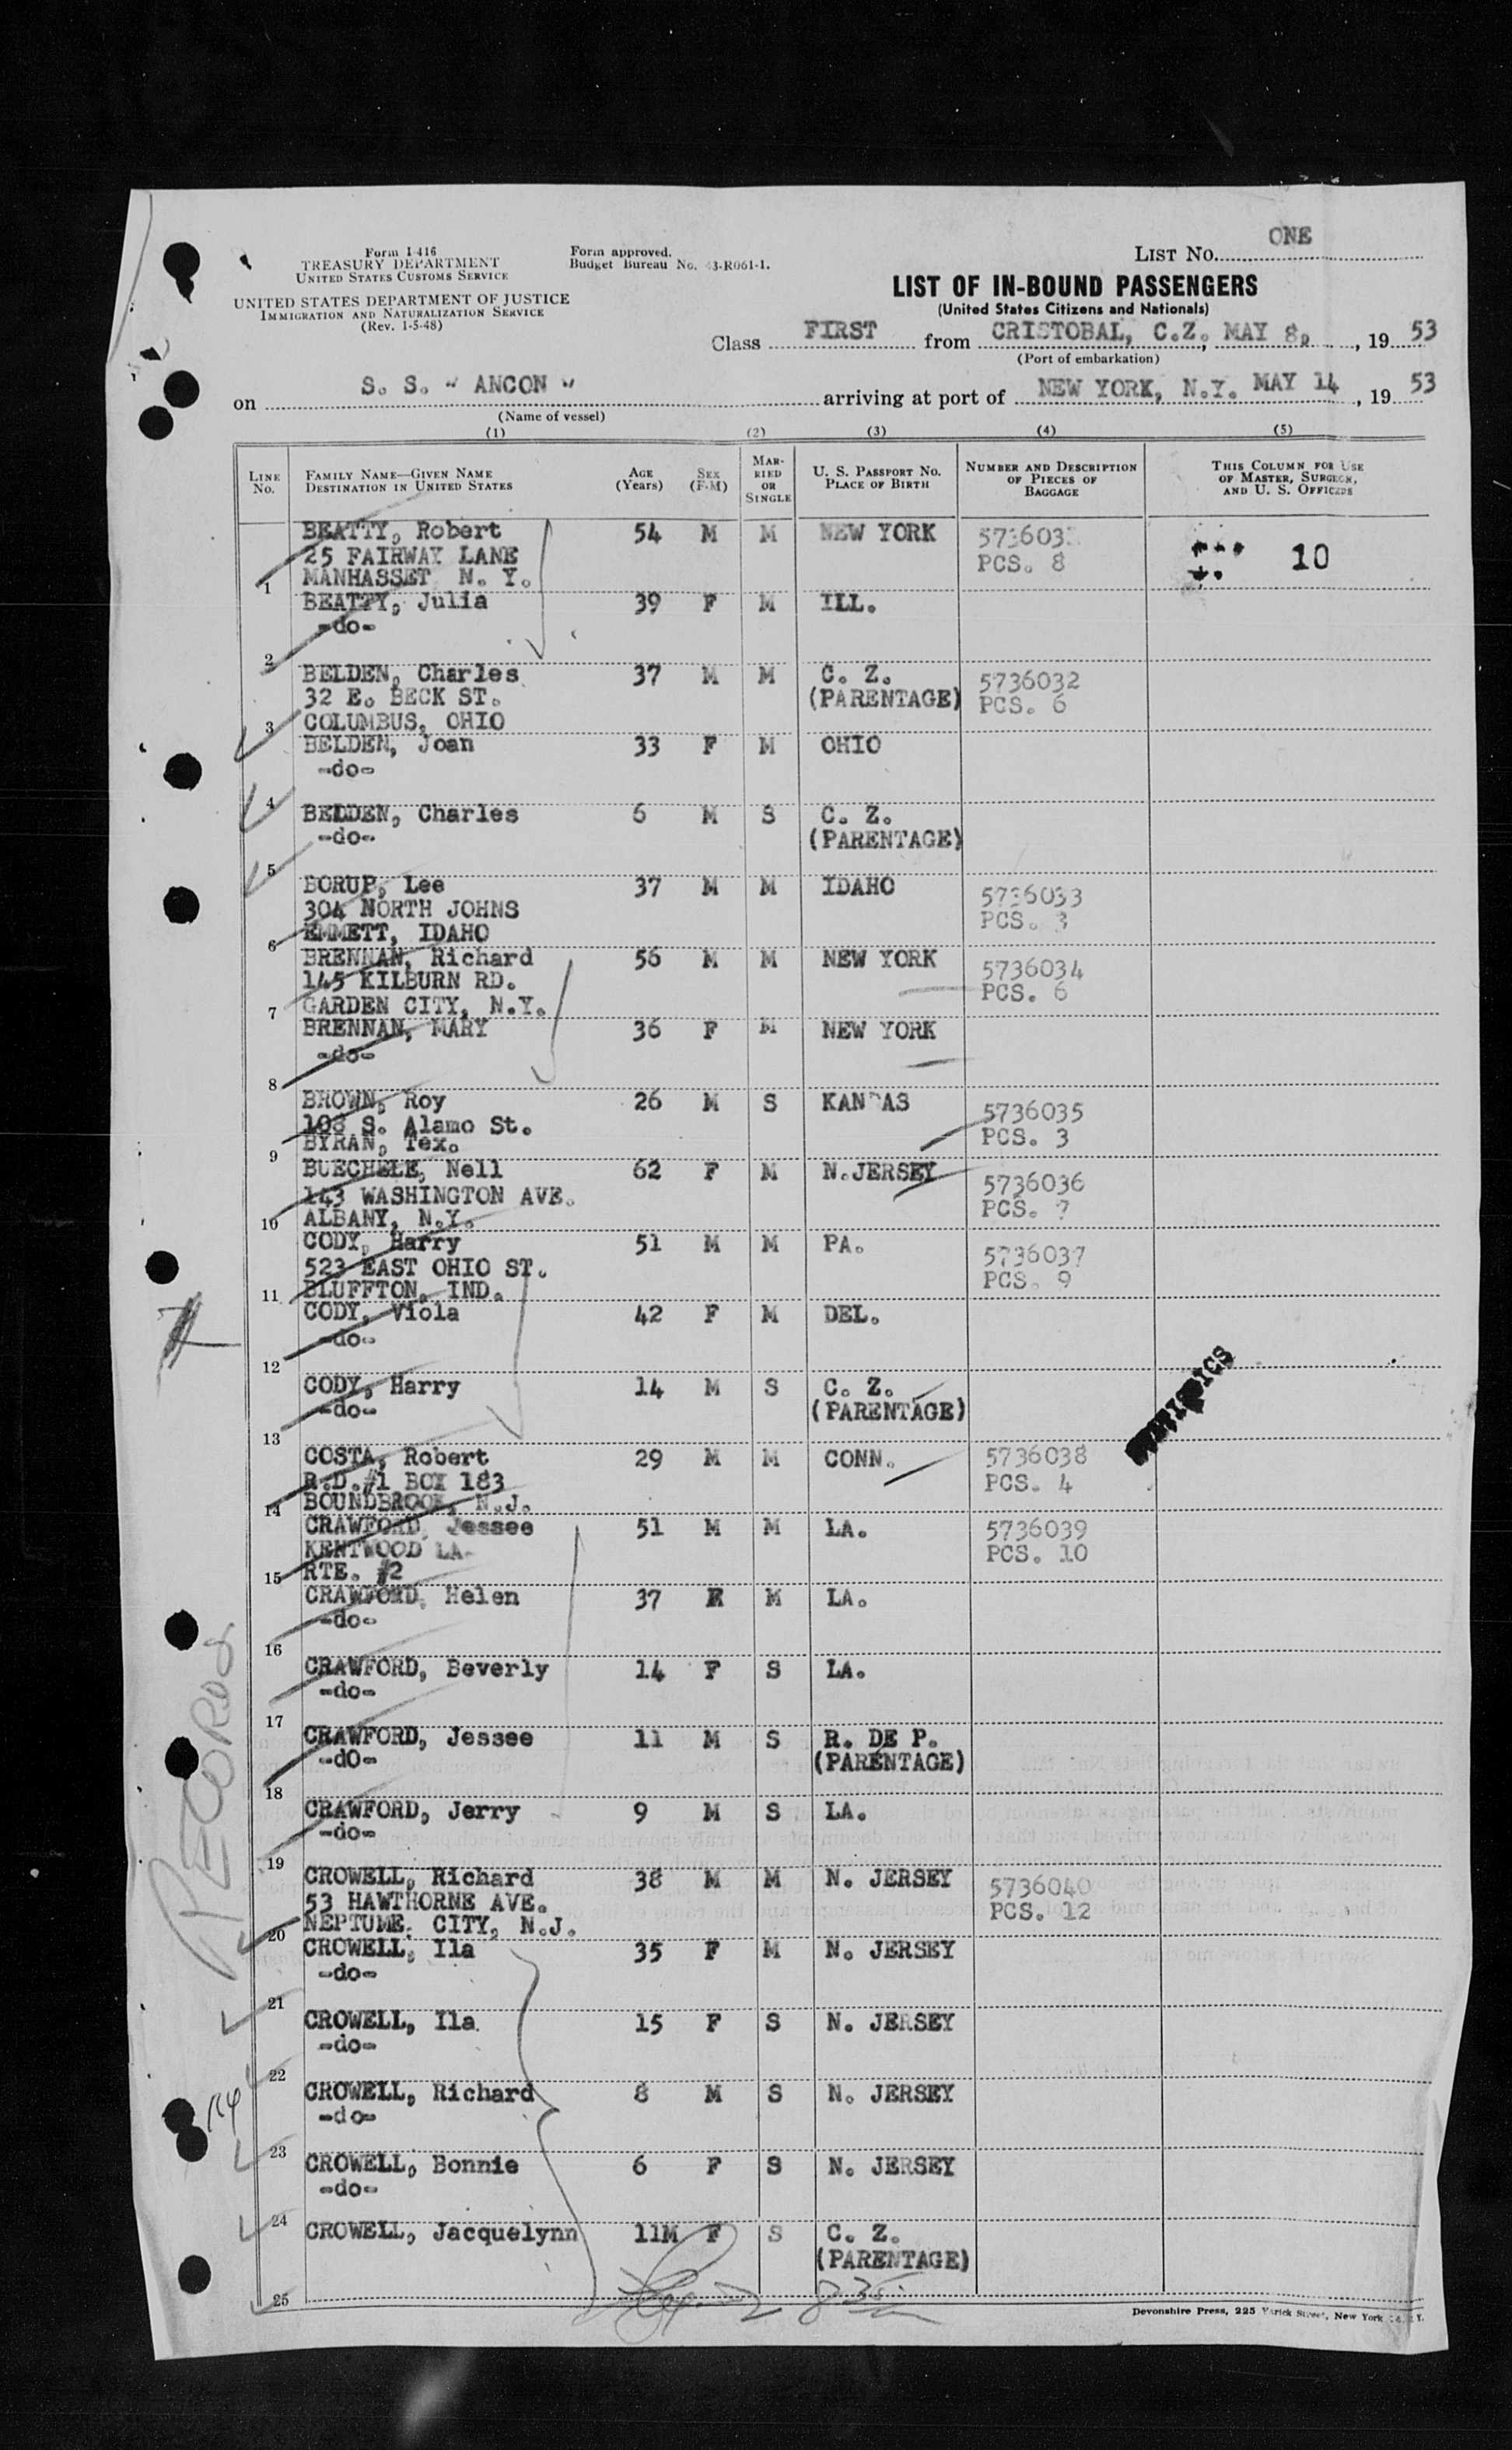 Form I-416
TREASURY DEPARTMENT
UNITED STATES CUSTOMS SERVICE
UNITED STATES DEPARTMENT OF JUSTICE
IMMIGRATION AND NATURALIZATION SERVICE
(Rev. 1-5-48)
Form approved.
Budget Bureau No. 43-R061-1.
LIST No. ONE
LIST OF IN-BOUND PASSENGERS
(United States Citizens and Nationals)
Class FIRST from CRISTOBAL, C.Z., MAY 8, , 19 53
(Port of embarkation)
on S. S. " ANCON " arriving at port of NEW YORK, N.Y. MAY 14 , 19 53
(Name of vessel)
(1) (2) (3) (4) (5)
LINE No. FAMILY NAME—GIVEN NAME DESTINATION IN UNITED STATES AGE (Years) SEX (F-M) MARRIED OR SINGLE U. S. PASSPORT NO. PLACE OF BIRTH NUMBER AND DESCRIPTION OF PIECES OF BAGGAGE THIS COLUMN FOR USE OF MASTER, SURGEON, AND U. S. OFFICERS
BEATTY, Robert 54 M M NEW YORK 573603
25 FAIRWAY LANE PCS. 8 10
1 MANHASSET N. Y.
BEATTY, Julia 39 F M ILL.
-do-
2
BELDEN, Charles 37 M M C. Z. 5736032
32 E. BECK ST. (PARENTAGE) PCS. 6
3 COLUMBUS, OHIO
BELDEN, Joan 33 F M OHIO
-do-
4
BELDEN, Charles 6 M S C. Z.
-do- (PARENTAGE)
5
BORUP, Lee 37 M M IDAHO 5736033
304 NORTH JOHNS PCS. 3
6 EMMETT, IDAHO
BRENNAN, Richard 56 M M NEW YORK 5736034
145 KILBURN RD. PCS. 6
7 GARDEN CITY, N.Y.
BRENNAN, MARY 36 F M NEW YORK
-do-
8
BROWN, Roy 26 M S KANSAS 5736035
108 S. Alamo St. PCS. 3
9 BYRAN, Tex.
BUECHELE, Nell 62 F M N.JERSEY 5736036
143 WASHINGTON AVE. PCS. 7
10 ALBANY, N.Y.
CODY, Harry 51 M M PA. 5736037
523 EAST OHIO ST. PCS. 9
11 BLUFFTON, IND.
CODY, Viola 42 F M DEL.
-do-
12
CODY, Harry 14 M S C. Z.
-do- (PARENTAGE)
13
COSTA, Robert 29 M M CONN. 5736038
R.D.#1 BOX 183 PCS. 4
14 BOUNDBROOK, N.J.
CRAWFORD, Jessee 51 M M LA. 5736039
KENTWOOD LA. PCS. 10
15 RTE. #2
CRAWFORD, Helen 37 F M LA.
-do-
16
CRAWFORD, Beverly 14 F S LA.
-do-
17
CRAWFORD, Jessee 11 M S R. DE P.
-dO- (PARENTAGE)
18
CRAWFORD, Jerry 9 M S LA.
-do-
19
CROWELL, Richard 38 M M N. JERSEY 5736040
53 HAWTHORNE AVE. PCS. 12
20 NEPTUNE. CITY, N.J.
CROWELL, Ila 35 F M N. JERSEY
-do-
21
CROWELL, Ila 15 F S N. JERSEY
-do-
22
CROWELL, Richard 8 M S N. JERSEY
-do-
23
CROWELL, Bonnie 6 F S N. JERSEY
-do-
24
CROWELL, Jacquelynn 11M F S C. Z.
(PARENTAGE)
25
RECORDS
Devonshire Press, 225 Varick Street, New York